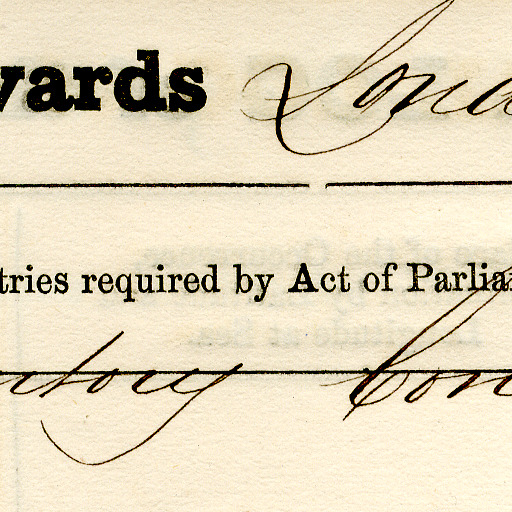 wards Lond
tries required by Act of Parlia
ntory Con